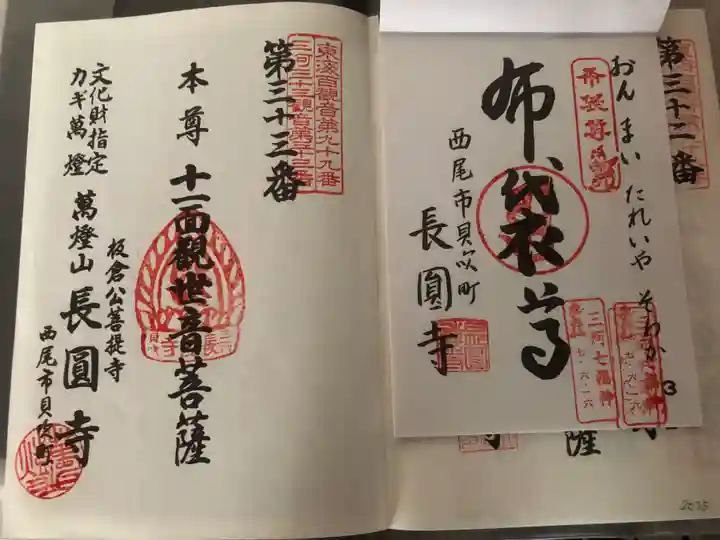 第三十二番
おん まい たれいや そわか
布袋尊
布袋尊
三河七福神
七.六.一六
七.六.一六
3
西尾市貝吹町
長圓寺
薩
2025
東海百觀音第九十九番
三河三十三觀音第三十三番
第三十三番
本尊 十一面觀世音菩薩
板倉公菩提寺
文化財指定
カギ萬燈
萬燈山 長圓寺
西尾市貝吹町